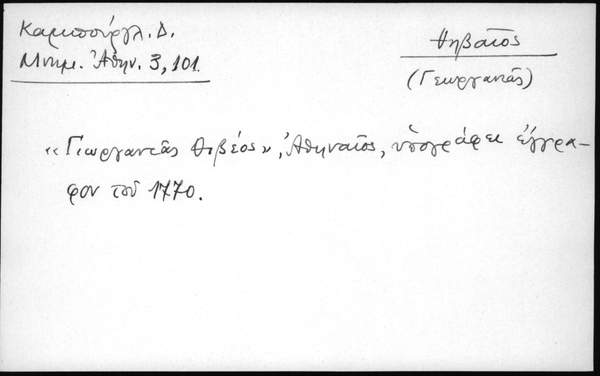 Καμπούρογλ. Δ.
Μνημ. Ἀθην. 3, 101.
Θηβαῖος
(Γεωργαντᾶς)
«Γιωργαντᾶς Θιβέος», Ἀθηναῖος, ὑπογράφει ἔγγρα-
φον τοῦ 1770.